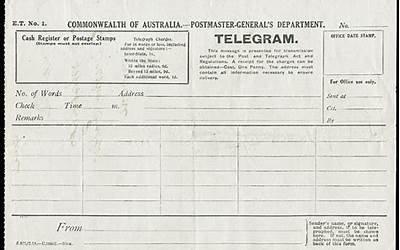 E.T. No. 1.
COMMONWEALTH OF AUSTRALIA.—POSTMASTER-GENERAL'S DEPARTMENT.
No.
Cash Register or Postage Stamps
(Stamps must not overlap)
Telegraph Charges.
For 16 words or less, including
address and signature:—
Inter-State, 1s.
Within the State:
15 miles radius, 6d.
Beyond 15 miles, 9d.
Each additional word, 1d.
TELEGRAM.
This message is presented for transmission
subject to the Post and Telegraph Act and
Regulations. A receipt for the charges can be
obtained—Cost, One Penny. The address must
contain all information necessary to ensure
delivery.
OFFICE DATE STAMP.
For Office use only.
No. of Words
Address
Sent at
Check
Time
m.
Cct.
Remarks
By
From
Sender's name, or signature,
and address, if to be tele-
graphed, must be shown
here. If not, the name and
address must be written on
back of this form.